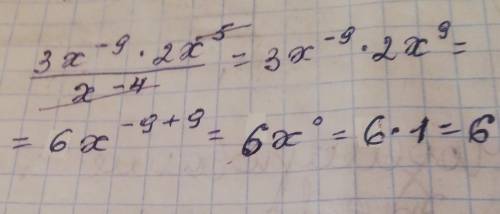 3x⁻⁹ · 2x⁻⁵ / x⁻⁴ = 3x⁻⁹ · 2x⁹ =
= 6x⁻⁹⁺⁹ = 6x⁰ = 6 · 1 = 6